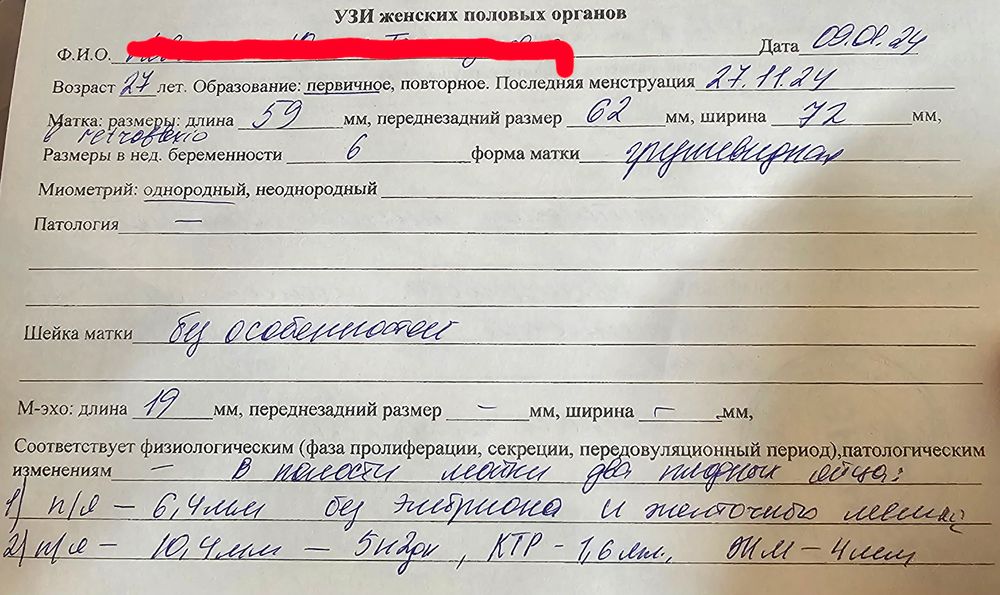 УЗИ женских половых органов
Ф.И.О. Дата 09.01.24
Возраст 27 лет. Образование: первичное, повторное. Последняя менструация 27.11.24
Матка: размеры: длина 59 мм, переднезадний размер 62 мм, ширина 72 мм,
Размеры в нед. беременности 6 форма матки грушевидная
Миометрий: однородный, неоднородный
Патология —
Шейка матки без особенностей
М-эхо: длина 19 мм, переднезадний размер – мм, ширина – мм,
Соответствует физиологическим (фаза пролиферации, секреции, передовуляционный период),патологическим
изменениям — В полости матки два плодных яйца:
1) п/я – 6,4мм без эмбриона и желточного мешка
2) п/я – 10,4мм – 5н2дн, КТР - 1,6мм, ЖМ – 4мм